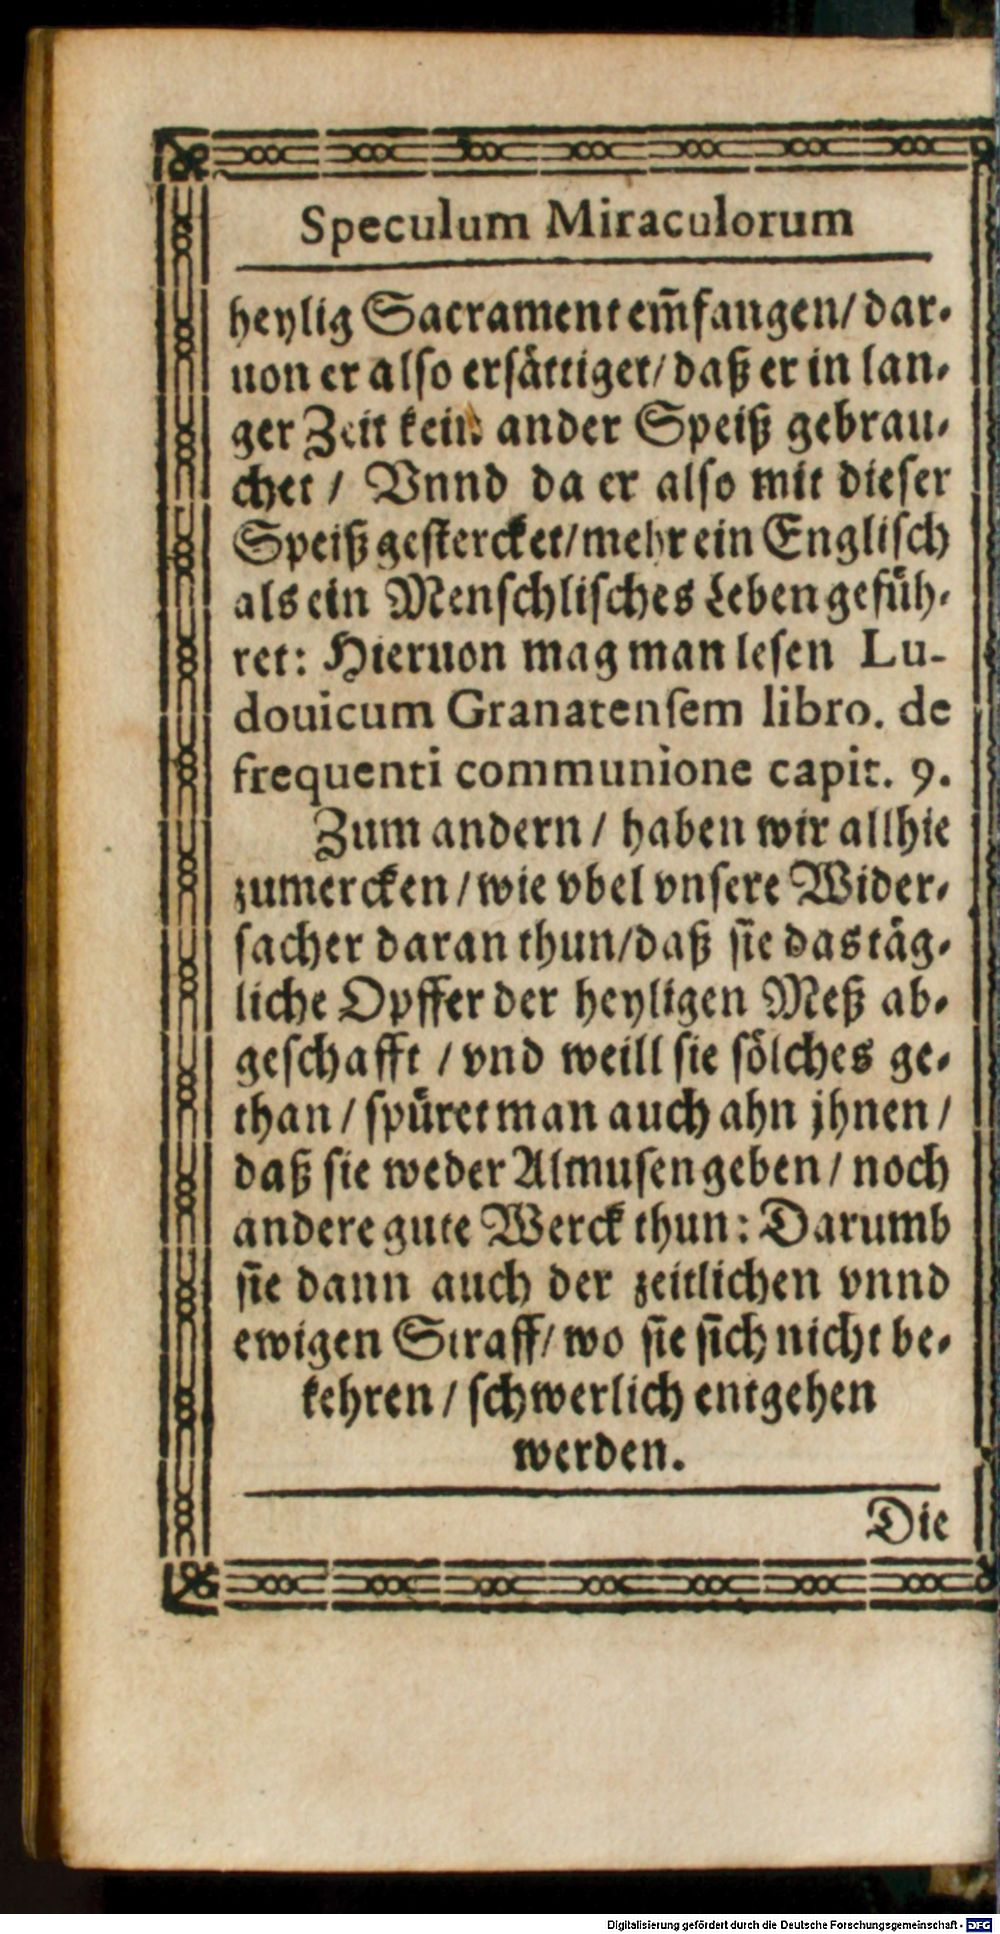 Speculum Miraculorum
heylig Sacrament em̃fangen/ dar-
uon er also ersättiget/ daß er in lan-
ger Zeit kein ander Speiß gebrau-
chet / Vnnd da er also mit dieser
Speiß gestercket/ mehr ein Englisch
als ein Menschlisches Leben gefüh-
ret: Hieruon mag man lesen Lu-
douicum Granatensem libro. de
frequenti communione capit. 9.
Zum andern / haben wir allhie
zumercken / wie vbel vnsere Wider-
sacher daran thun/ daß sie das täg-
liche Opffer der heyligen Meß ab-
geschafft / vnd weill sie sölches ge-
than / spüret man auch ahn jhnen /
daß sie weder Almusen geben / noch
andere gute Werck thun: Darumb
sie dann auch der zeitlichen vnnd
ewigen Straff/ wo sie sich nicht be-
kehren / schwerlich entgehen
werden.
Die
Digitalisierung gefördert durch die Deutsche Forschungsgemeinschaft - DFG